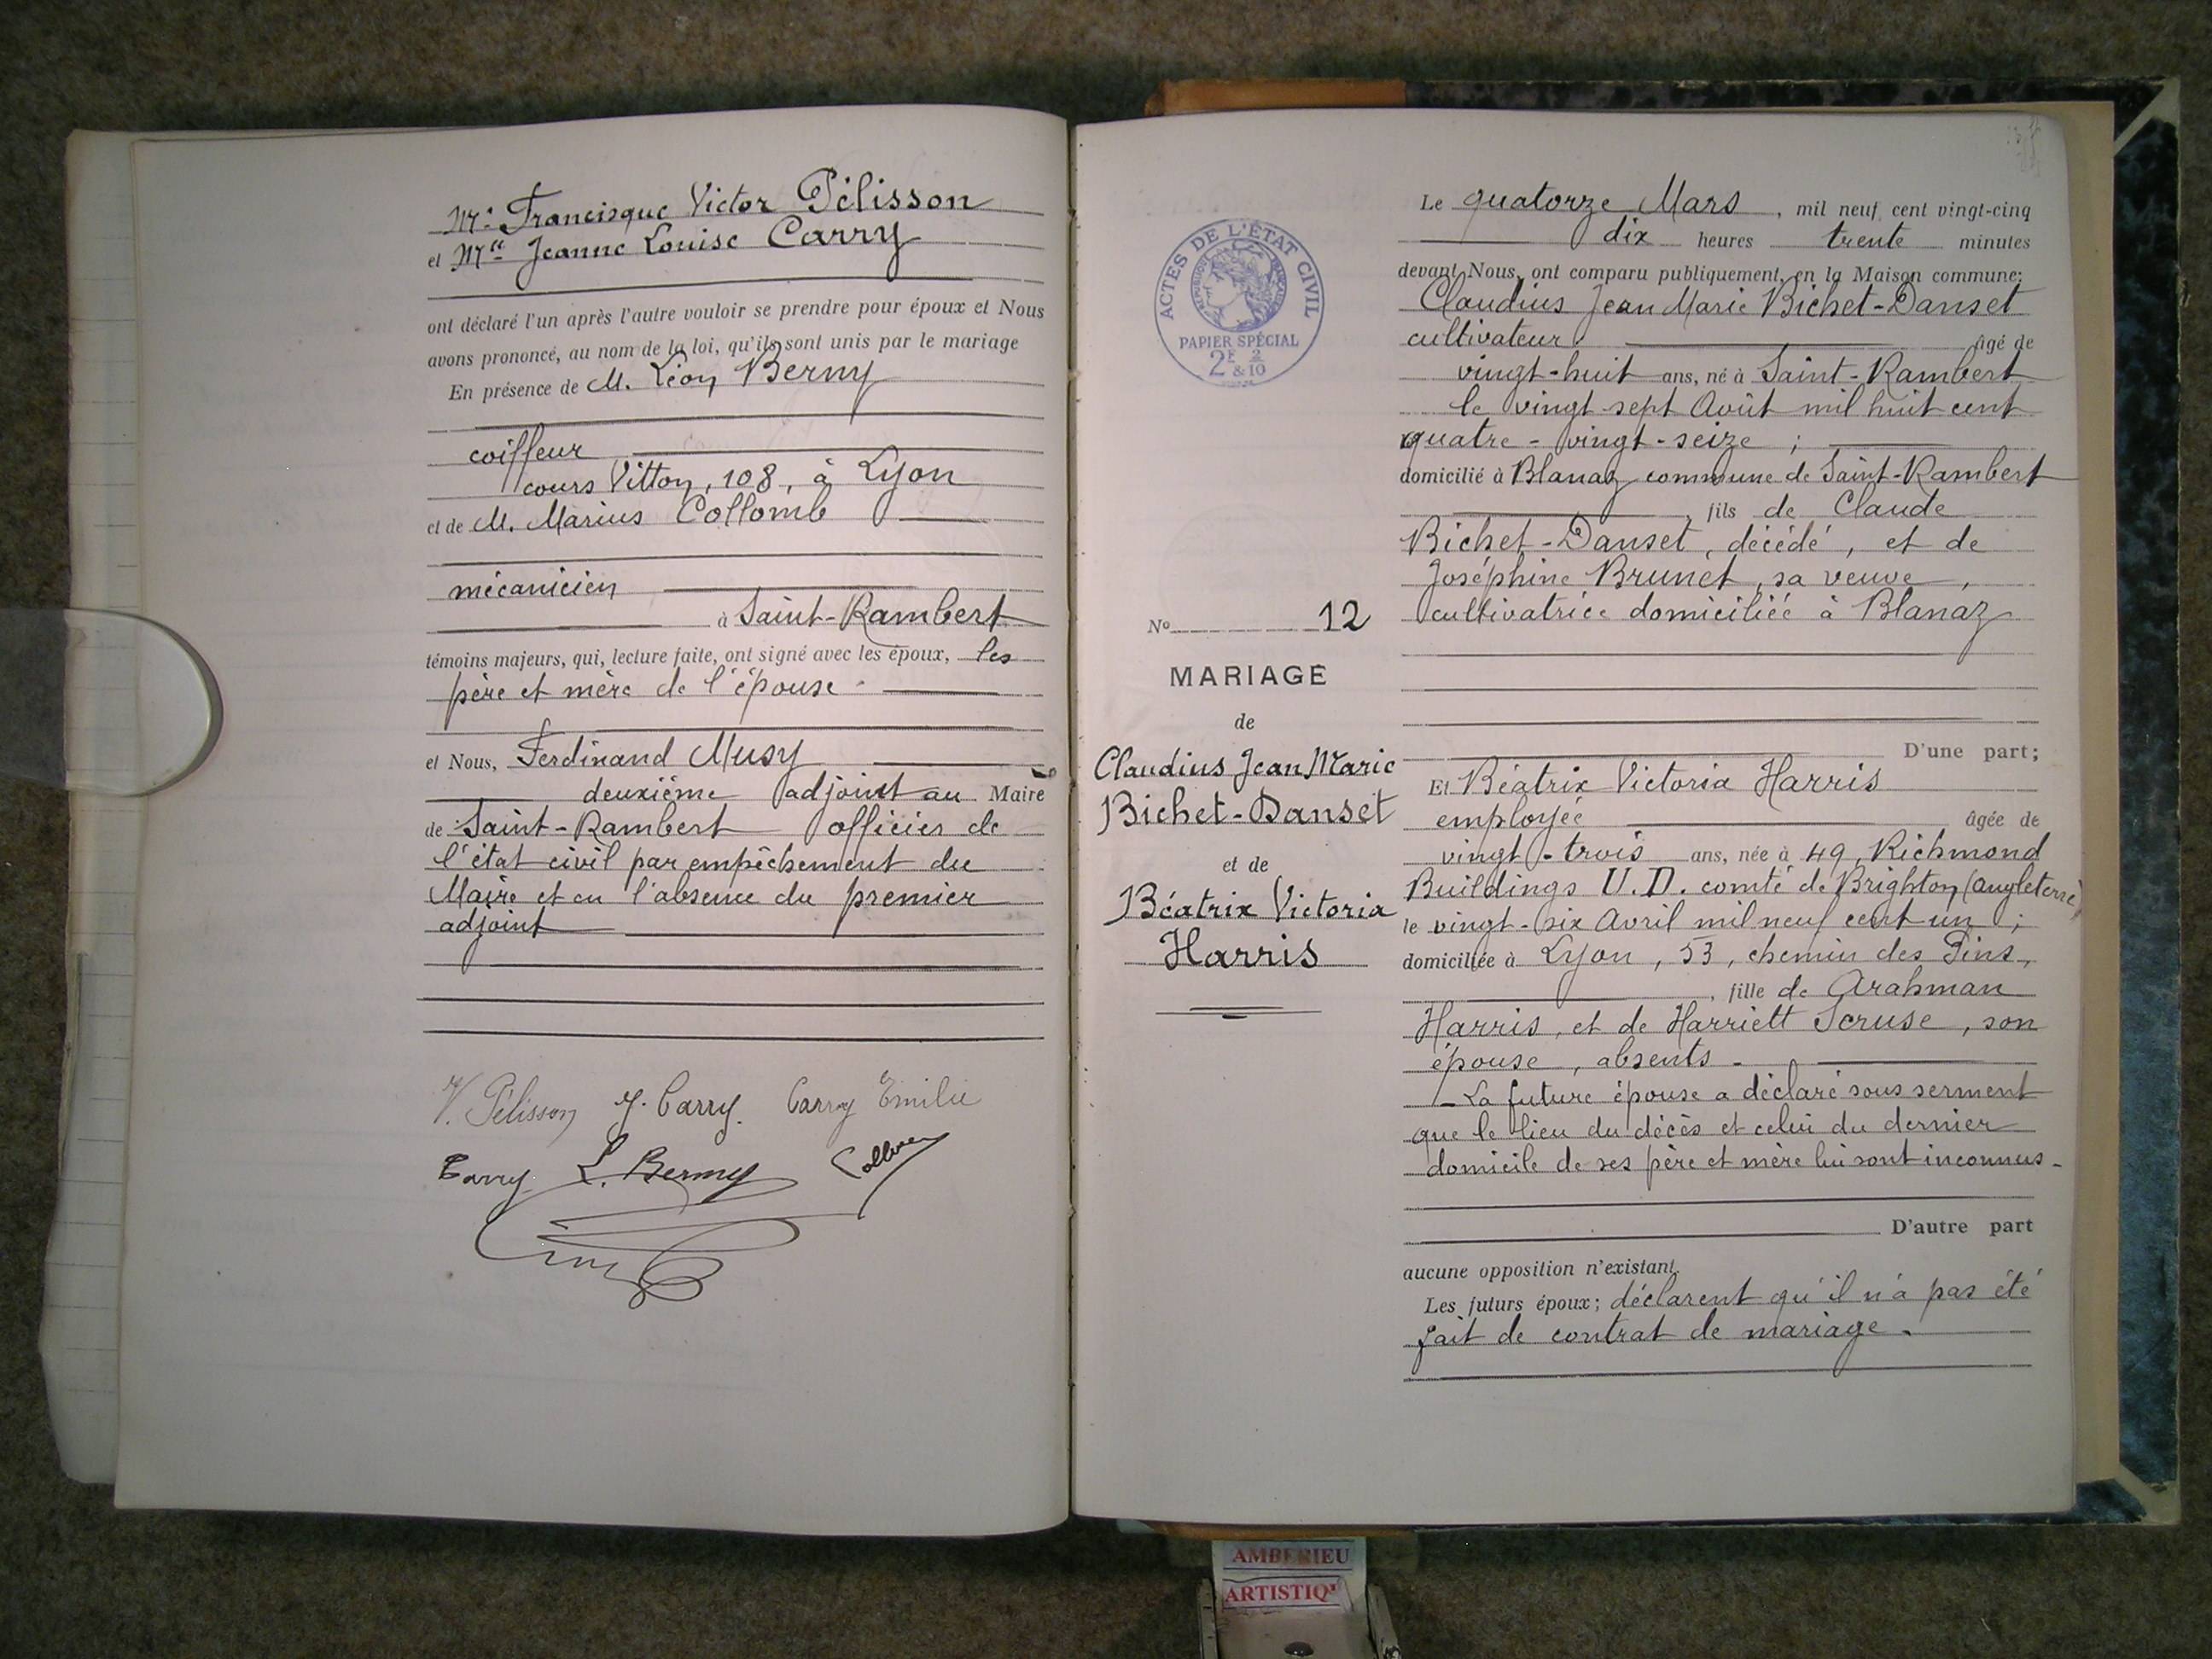 Mr. Francisque Victor Pélisson
et Mlle Jeanne Louise Carry
ont déclaré l'un après l'autre vouloir se prendre pour époux et Nous
avons prononcé, au nom de la loi, qu'ils sont unis par le mariage
En présence de M. Léon Berny
coiffeur
cours Vitton, 108, à Lyon
et de M. Marius Collomb
mécanicien
à Saint-Rambert
témoins majeurs, qui, lecture faite, ont signé avec les époux, les
père et mère de l'épouse.
et Nous, Ferdinand Musy
deuxième adjoint au Maire
de Saint-Rambert officier de
l'état civil par empêchement du
Maire et en l'absence du premier
adjoint
V. Pélisson J. Carry. Carry Emilie
Carry L. Berny
ACTES DE L'ÉTAT CIVIL
RÉPUBLIQUE FRANÇAISE
PAPIER SPÉCIAL
2F & 2/10
No 12
MARIAGE
de
Claudius Jean Marie
Bichet-Danset
et de
Béatrix Victoria
Harris
Le quatorze Mars, mil neuf cent vingt-cinq
dix heures trente minutes
devant Nous, ont comparu publiquement, en la Maison commune:
Claudius Jean Marie Bichet-Danset
cultivateur. âgé de
vingt-huit ans, né à Saint-Rambert
le vingt-sept Août mil huit cent
quatre-vingt-seize;
domicilié à Blanaz commune de Saint-Rambert
, fils de Claude
Bichet-Danset, décédé, et de
Joséphine Brunet, sa veuve,
cultivatrice domiciliée à Blanaz
D'une part;
Et Béatrix Victoria Harris
employée âgée de
vingt-trois ans, née à 49, Richmond
Buildings U.D. comté de Brighton (Angleterre)
le vingt-six Avril mil neuf cent un;
domiciliée à Lyon, 53, chemin des Pins,
, fille de Arahman
Harris, et de Harriett Scruse, son
épouse, absents.
- La future épouse a déclaré sous serment
que le lieu du décès et celui du dernier
domicile de ses père et mère lui sont inconnus.
D'autre part
aucune opposition n'existant.
Les futurs époux; déclarent qu'il n'a pas été
fait de contrat de mariage.
AMBERIEU
ARTISTIQ'